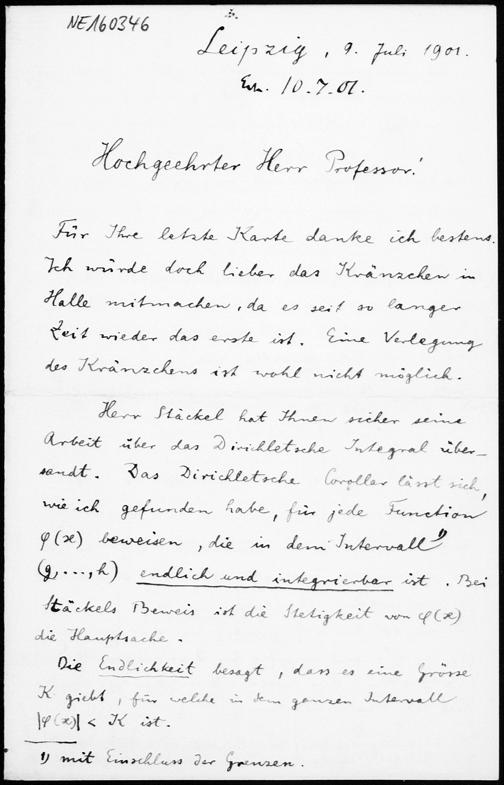 NE160346
Leipzig, 9. Juli 1901.
10.7.01.
Hochgeehrter Herr Professor!
Für Ihre letzte Karte danke ich bestens.
Ich würde doch lieber das Kränzchen in
Halle mitmachen, da es seit so langer
Zeit wieder das erste ist. Eine Verlegung
des Kränzchens ist wohl nicht möglich.
Herr Stäckel hat Ihnen sicher seine
Arbeit über das Dirichletsche Integral über-
sandt. Das Dirichletsche Corollar lässt sich,
wie ich gefunden habe, für jede Function
φ(x) beweisen, die in dem Intervall ¹)
(g,...,h) endlich und integrierbar ist. Bei
Stäckels Beweis ist die Stetigkeit von φ(x)
die Hauptsache.
Die Endlichkeit besagt, dass es eine Grösse
K giebt, für welche in dem ganzen Intervall
|φ(x)| < K ist.
1) mit Einschluss der Grenzen.